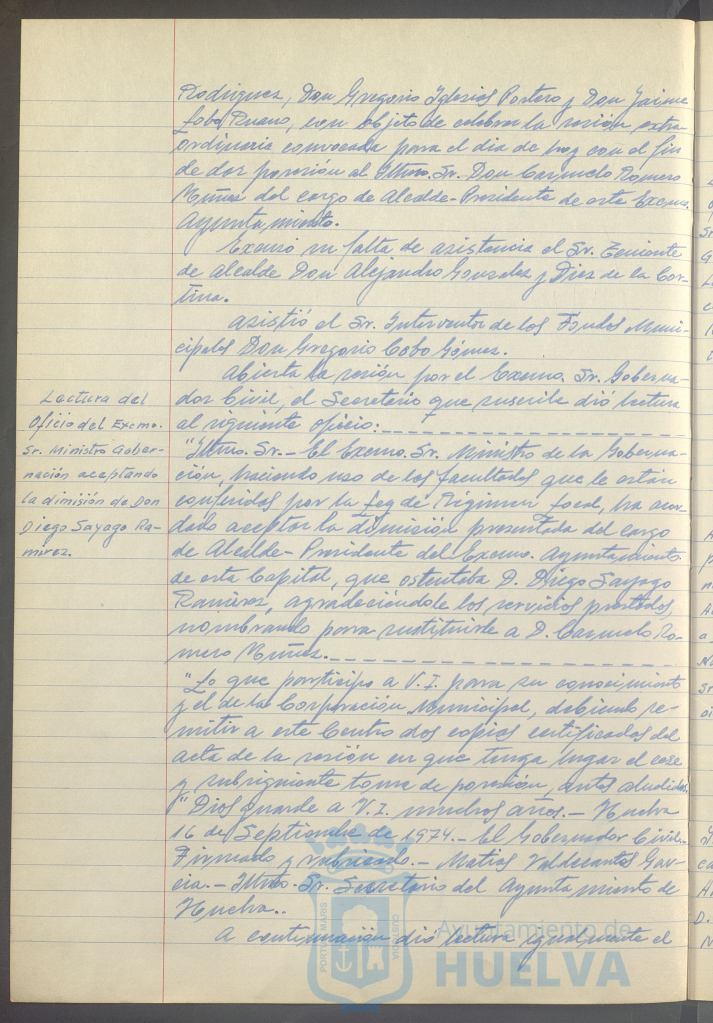 Rodríguez, Don Gregorio Iglesias Portero y Don Jaime
Lobo Ruano, con objeto de celebrar la sesión extra-
ordinaria convocada para el dia de hoy con el fin
de dar posesión al Iltmo. Sr. Don Carmelo Romero
Núñez del cargo de Alcalde-Presidente de este Excmo.
Ayuntamiento.
Excusó su falta de asistencia el Sr. Teniente
de Alcalde Don Alejandro Gonzalez y Diez de la Cor-
tina.
Asistió el Sr. Interventor de los Fondos Muni-
cipales Don Gregorio Cobo Gómez.
Abierta la sesión por el Excmo. Sr. Goberna-
dor Civil, el Secretario que suscribe dió lectura
al siguiente oficio:
Lectura del
Oficio del Excmo.
Sr. Ministro Gober-
nación aceptando
la dimisión de Don
Diego Sayago Ra-
mirez.
"Iltmo. Sr.- El Excmo. Sr. Ministro de la Goberna-
ción, haciendo uso de las facultades que le están
conferidas por la Ley de Régimen Local, ha acor-
dado aceptar la dimisión presentada del cargo
de Alcalde-Presidente del Excmo. Ayuntamiento
de esta Capital, que ostentaba D. Diego Sayago
Ramirez, agradeciéndole los servicios prestados,
nombrando para sustituirle a D. Carmelo Ro-
mero Núñez.
"Lo que participo a V.I. para su conocimiento
y el de la Corporación Municipal, debiendo re-
mitir a este Centro dos copias certificadas del
acta de la sesión en que tenga lugar el cese
y subsiguiente toma de posesión, antes aludidos.
"Dios guarde a V.I. muchos años.- Huelva
16 de Septiembre de 1974.- El Gobernador Civil.-
Firmado y rubricado.- Matías Valdecantos Gar-
cia.- Iltmo. Sr. Secretario del Ayuntamiento de
Huelva..
A continuación dió lectura igualmente el
PORTUS MARIS
CUSTODIA
Ayuntamiento de
HUELVA